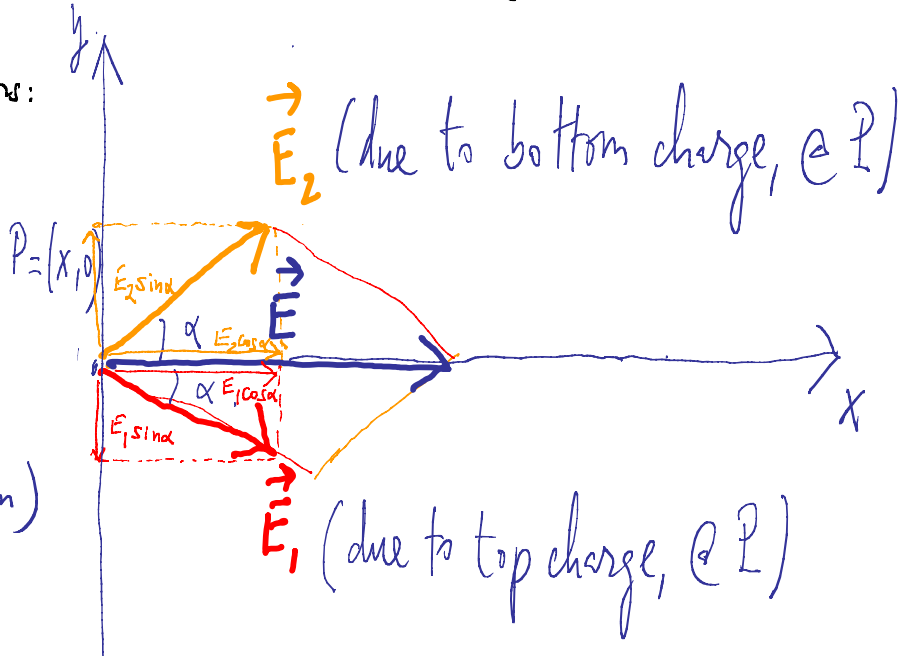 y
ns:
E₂ (due to bottom charge, @ P)
P=(x,0)
E₂sinα
E
α
E₂cosα
α
E₁cosα
x
E₁sinα
E₁ (due to top charge, @ P)